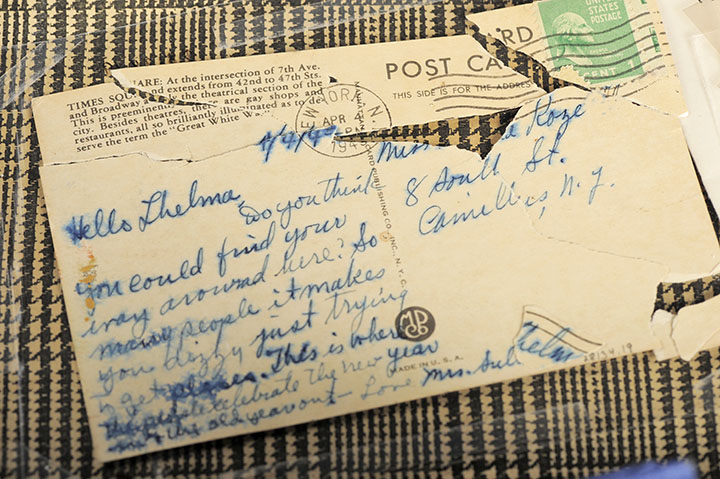 TIMES SQUARE: At the intersection of 7th Ave.
and Broadway and extends from 42nd to 47th Sts.
This is preeminently the theatrical section of the
city. Besides theatres, there are gay shops and
restaurants, all so brilliantly illuminated as to de-
serve the term the "Great White Way
POST CARD
THIS SIDE IS FOR THE ADDRESS
UNITED
STATES
POSTAGE
1 CENT 1
NEW YORK, N.
APR
194
4/4/49
Hello Thelma,
Do you think
you could find your
way around here? So
many people it makes
you dizzy just trying
to get places. This is where
the people celebrate the New Year
and the old year out - Love Mrs. Sull
Miss Koze
8 South St.
Camillus, N.Y.
MANHATTAN POST CARD PUBLISHING CO., INC., N. Y. C.
MADE IN U. S. A.
Thelm